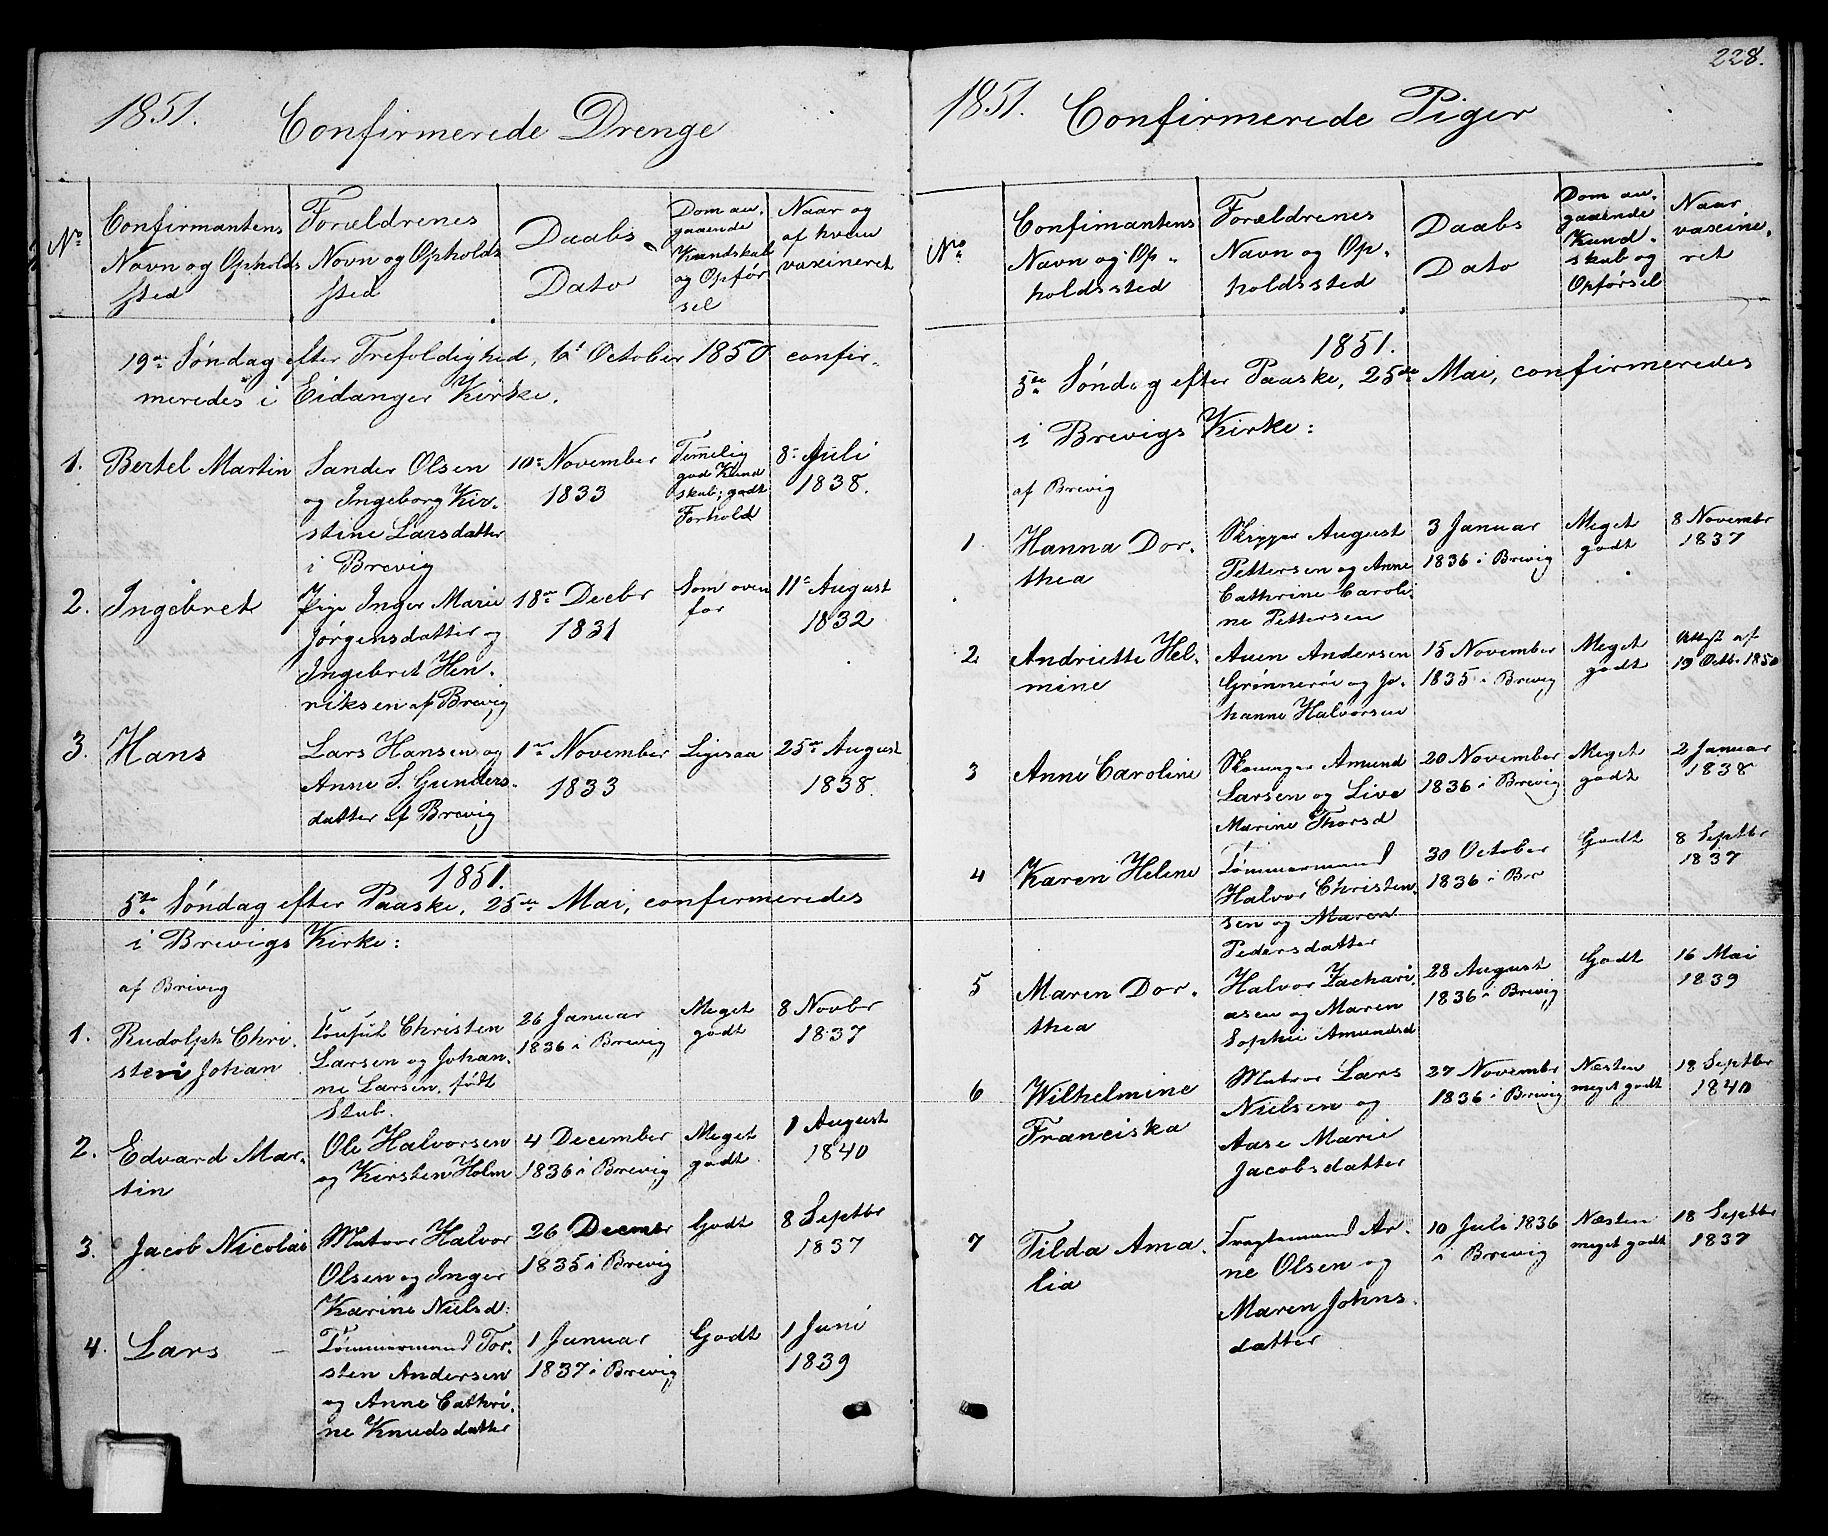 1851. Confirmerede Drenge
No
Confirmantens
Navn og Opholds
sted
Forældrenes
Navn og Opholds
sted
Daabs
Dato
Dom an-
gaaende
Kundskab
og Opfør
sel
Naar og
af hvem
vaxineret
19de Søndag efter Trefoldighed, 6t October 1850 confir-
meredes i Eidanger Kirke.
1. Bertel Martin
Sander Olsen
og Ingeborg Kir-
stine Larsdatter
i Brevig
10de November
1833
Temelig
god Kund
skab; godt
Forhold
8de Juli
1838.
2. Ingebret
Pige Inger Marie
Jørgensdatter og
Ingebret Hen-
riksen af Brevig
18de Decbr
1831
Som oven
for
11te August
1832
3. Hans
Lars Hansen og
Anne S. Gunders-
datter af Brevig
1ste November
1833
Ligesaa
25de August
1838.
1851.
5te Søndag efter Paaske, 25de Mai, confirmeredes
i Brevigs Kirke:
af Brevig
1. Rudolph Chri-
sten Johan
Christen
Larsen og Johan-
ne Larsen, født
Stub.
26 Januar
1836 i Brevig
Meget
godt
8 Novbr
1837
2. Edvard Mar-
tin
Ole Halvorsen
og Kirsten Holm
4 December
1836 i Brevig
Meget
godt
1 August
1840
3. Jacob Nicolai
Matros Halvor
Olsen og Inger
Karine Nielsd:
26 Decmbr
1835 i Brevig
Godt
8 Septbr
1837
4. Lars
Tømmermand Tor-
sten Andersen
og Anne Cathri-
ne Knudsdatter
1 Januar
1837 i Brevig
Godt
1 Juni
1839
228.
1851. Confirmerede Piger
No
Confimantens
Navn og Op-
holdssted
Forældrenes
Navn og Op-
holdssted
Daabs
Dato
Dom an-
gaaende
Kund-
skab og
Opførsel
Naar
vaxine-
ret
1851.
5te Søndag efter Paaske, 25de Mai, confirmeredes
i Brevigs Kirke:
af Brevig
1 Hanna Dor-
thea
Skipper August
Pettersen og Anne
Cathrine Caroli-
ne Pettersen
3 Januar
1836 i Brevig
Meget
godt
8 Novembr
1837
2 Andriette Hel-
mine
Auen Andersen
Grønnerøi og Jo-
hanne Halvorsen
15 November
1835 i Brevig
Meget
godt
Attest af
19 Octb. 1850
3 Anne Caroline
Amund
Larsen og Live
Marine Thorsd
20 November
1836 i Brevig
Meget
godt
2 Januar
1838
4 Karen Helene
Tømmermand
Halvor Christen-
sen og Maren
Pedersdatter
30 October
1836 i Br
Godt
8 Septbr
1837
5 Maren Dor-
thea
Halvor Zachari-
asen og Maren
Sophie Amundsd
28 August
1836 i Brevig
Godt
16 Mai
1839
6 Wilhelmine
Franciska
Matros Lars
Nielsen og
Aase Marie
Jacobsdatter
27 Novembr
1836 i Brevig
Næsten
meget godt
18 Septbr
1840
7 Tilda Ama-
lia
Fragtemand Ar-
ne Olsen og
Maren Johns-
datter
10 Juli 1836
i Brevig
Næsten
meget godt
18 Septbr
1837